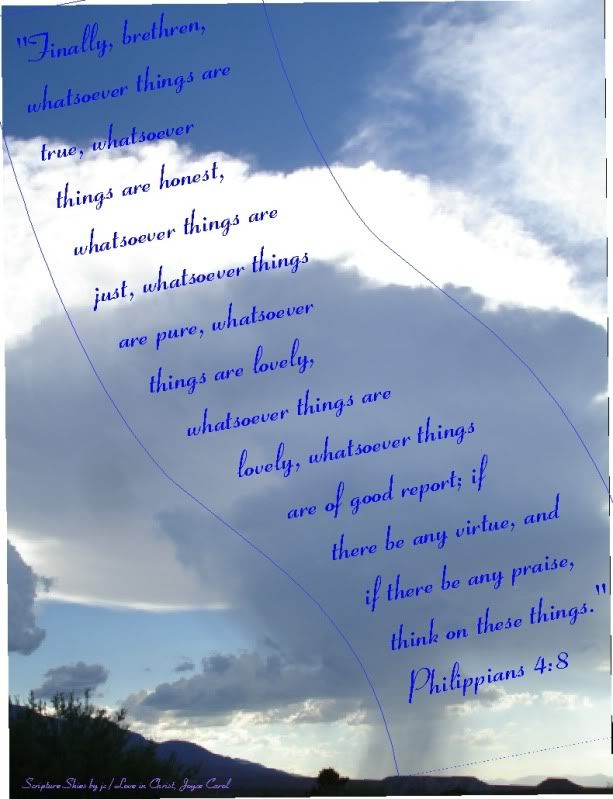 "Finally, brethren,
whatsoever things are
true, whatsoever
things are honest,
whatsoever things are
just, whatsoever things
are pure, whatsoever
things are lovely,
whatsoever things are
lovely, whatsoever things
are of good report; if
there be any virtue, and
if there be any praise,
think on these things."
Philippians 4:8
Scripture Skies by jc / Love in Christ, Joyce Carol